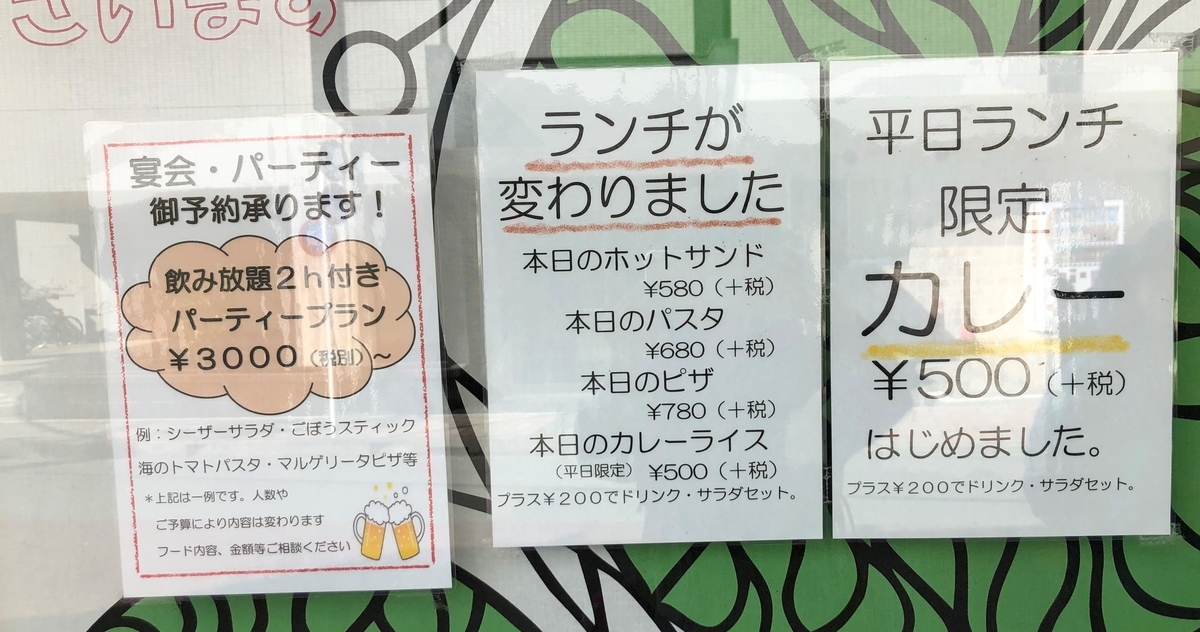 ざいます
宴会・パーティー
御予約承ります！
飲み放題２ｈ付き
パーティープラン
￥３０００（税別）～
例：シーザーサラダ・ごぼうスティック
海のトマトパスタ・マルゲリータピザ等
＊上記は一例です。人数や
ご予算により内容は変わります
フード内容、金額等ご相談ください
ランチが
変わりました
本日のホットサンド
¥580（＋税）
本日のパスタ
¥680（＋税）
本日のピザ
¥780（＋税）
本日のカレーライス
（平日限定） ¥500（＋税）
プラス￥２００でドリンク・サラダセット。
平日ランチ
限定
カレー
￥500（＋税）
はじめました。
プラス￥２００でドリンク・サラダセット。